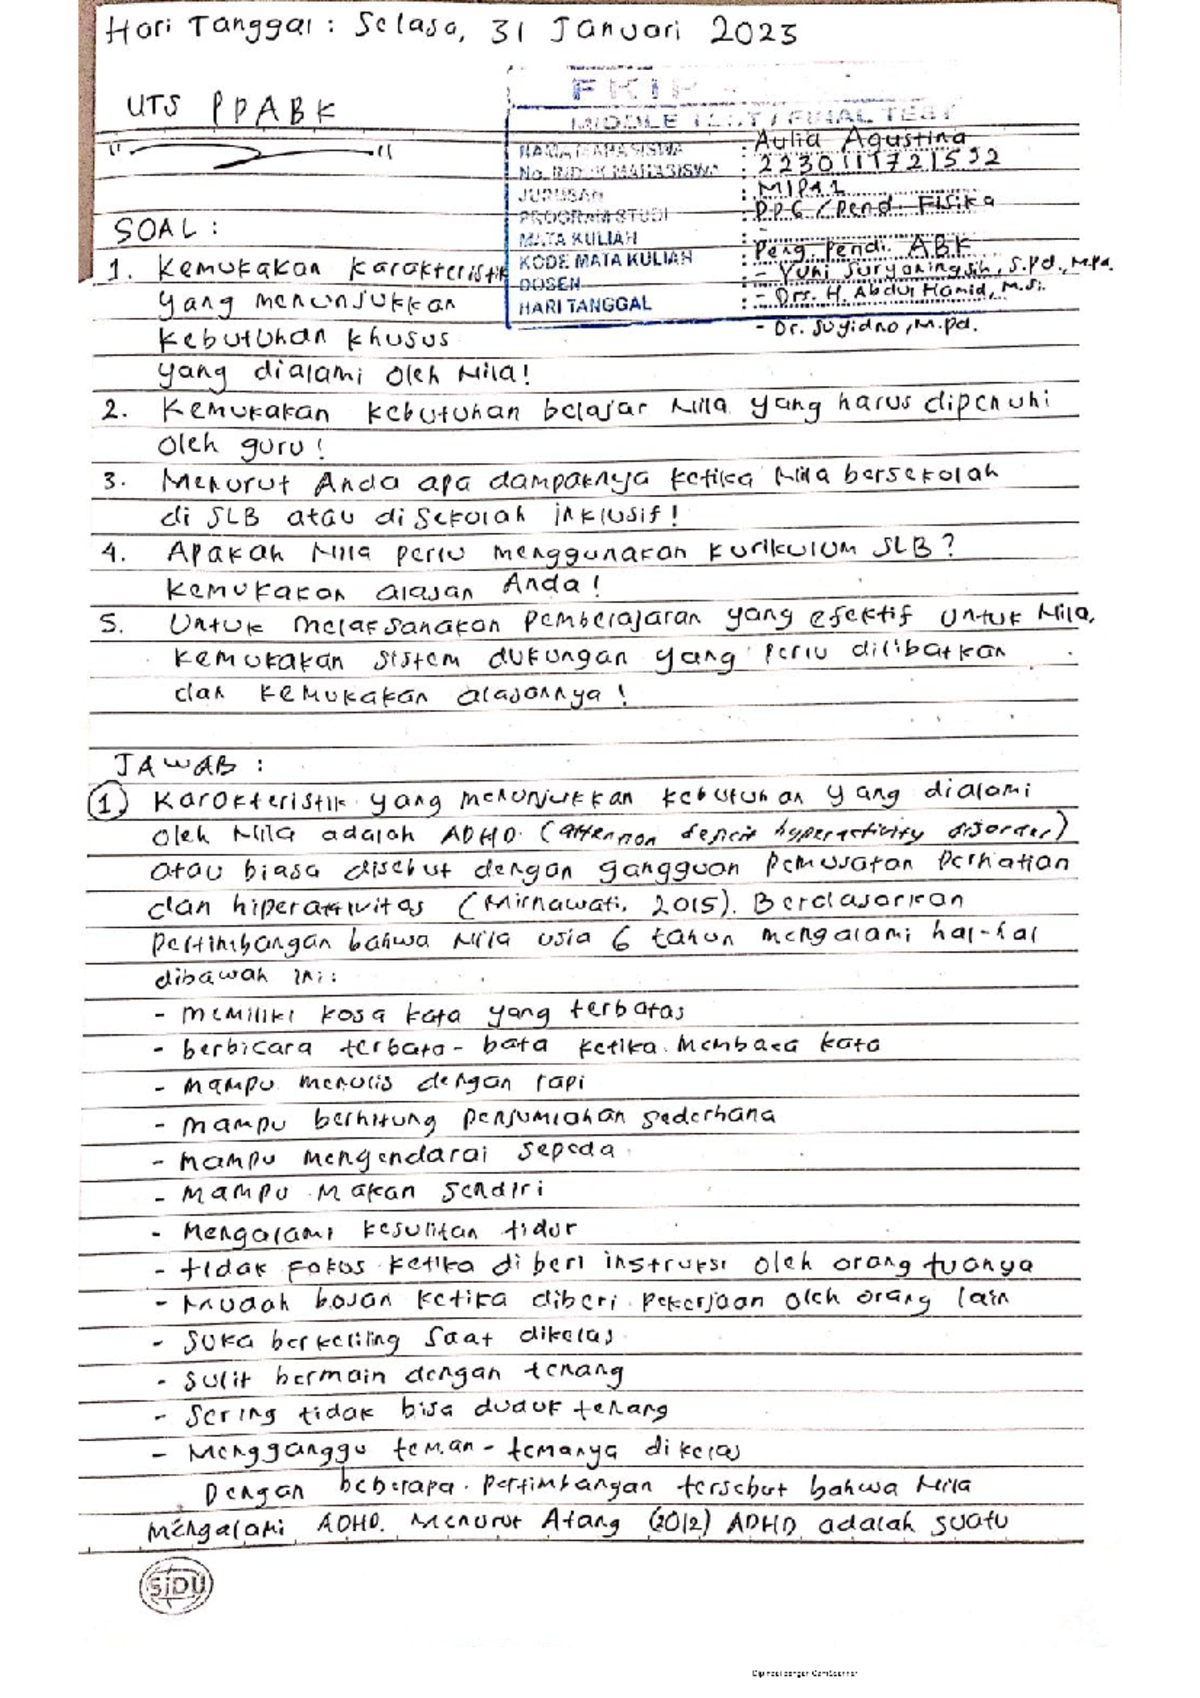 Hari Tanggal : Selasa, 31 Januari 2023
UTS PPABK
FKIP
MIDDLE TEST / FINAL TEST
NAMA MAHASISWA : Aulia Agustina
No. INDUK MAHASISWA : 2230111721592
JURUSAN : MIPA 1
PROGRAM STUDI : PPG / Pend. Fisika
MATA KULIAH : -
KODE MATA KULIAH : Peng Pendi. ABK
DOSEN : - Yuni Suryaningsih, S.Pd., M.Pd.
HARI TANGGAL : - Drs. H. Abdul Hamid, M.Si.
- Dr. Suyidno, M.Pd.
SOAL :
1. Kemukakan karakteristik
yang menunjukkan
kebutuhan khusus
yang dialami oleh Nila!
2. Kemukakan kebutuhan belajar Nila yang harus dipenuhi
oleh guru!
3. Menurut Anda apa dampaknya ketika Nila bersekolah
di SLB atau di sekolah inklusif!
4. Apakah Nila perlu menggunakan kurikulum SLB?
Kemukakan alasan Anda!
5. Untuk melaksanakan pemberajaran yang efektif untuk Nila,
kemukakan sistem dukungan yang perlu dilibatkan
dan kemukakan alasannya!
JAWAB :
1) Karakteristik yang menunjukkan kebutuhan yang dialami
oleh Nila adalah ADHD (attention deficit hyperactivity disorder)
atau biasa disebut dengan gangguan pemusatan perhatian
dan hiperaktivitas (Mirnawati, 2015). Berdasarkan
pertimbangan bahwa Nila usia 6 tahun mengalami hal-hal
dibawah ini:
- memiliki kosa kata yang terbatas
- berbicara terbata-bata ketika membaca kata
- mampu menulis dengan rapi
- mampu berhitung penjumlahan sederhana
- mampu mengendarai sepeda
- mampu makan sendiri
- mengalami kesulitan tidur
- tidak fokus ketika diberi instruksi oleh orang tuanya
- mudah bosan ketika diberi pekerjaan oleh orang lain
- suka berkeliling saat dikelas
- sulit bermain dengan tenang
- sering tidak bisa duduk tenang
- Mengganggu teman-temanya dikelas
Dengan beberapa pertimbangan tersebut bahwa Nila
mengalami ADHD. Menurut Atang (2012) ADHD adalah suatu
SiDU
Dipindai dengan CamScanner